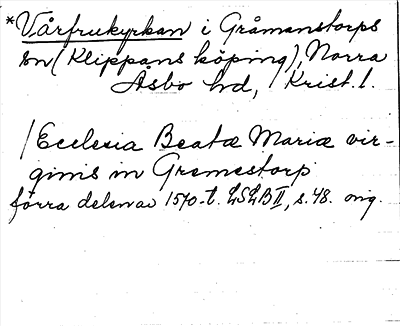 *Vårfrukyrkan i Gråmanstorps
sn (Klippans köping), Norra
Åsbo hd, Krist. l.
/Ecclesia Beatæ Mariæ vir-
ginis in Gremestorp
förra delen av 1570-t. LSLB II, s. 48. orig.